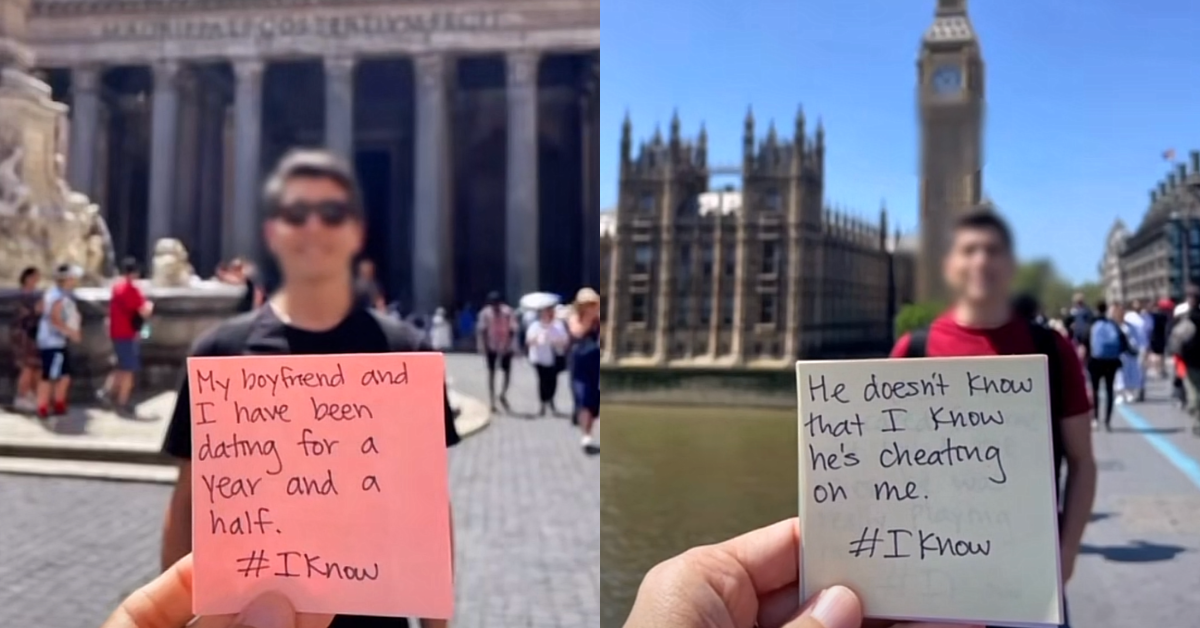 My boyfriend and
I have been
dating for a
year and a
half.
#IKnow
He doesn't know
that I know
he's cheating
on me.
#IKnow